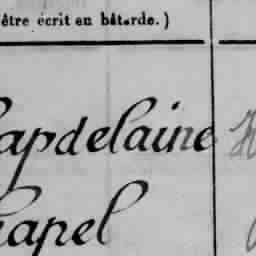 être écrit en bâtarde.)
apdelaine
apel